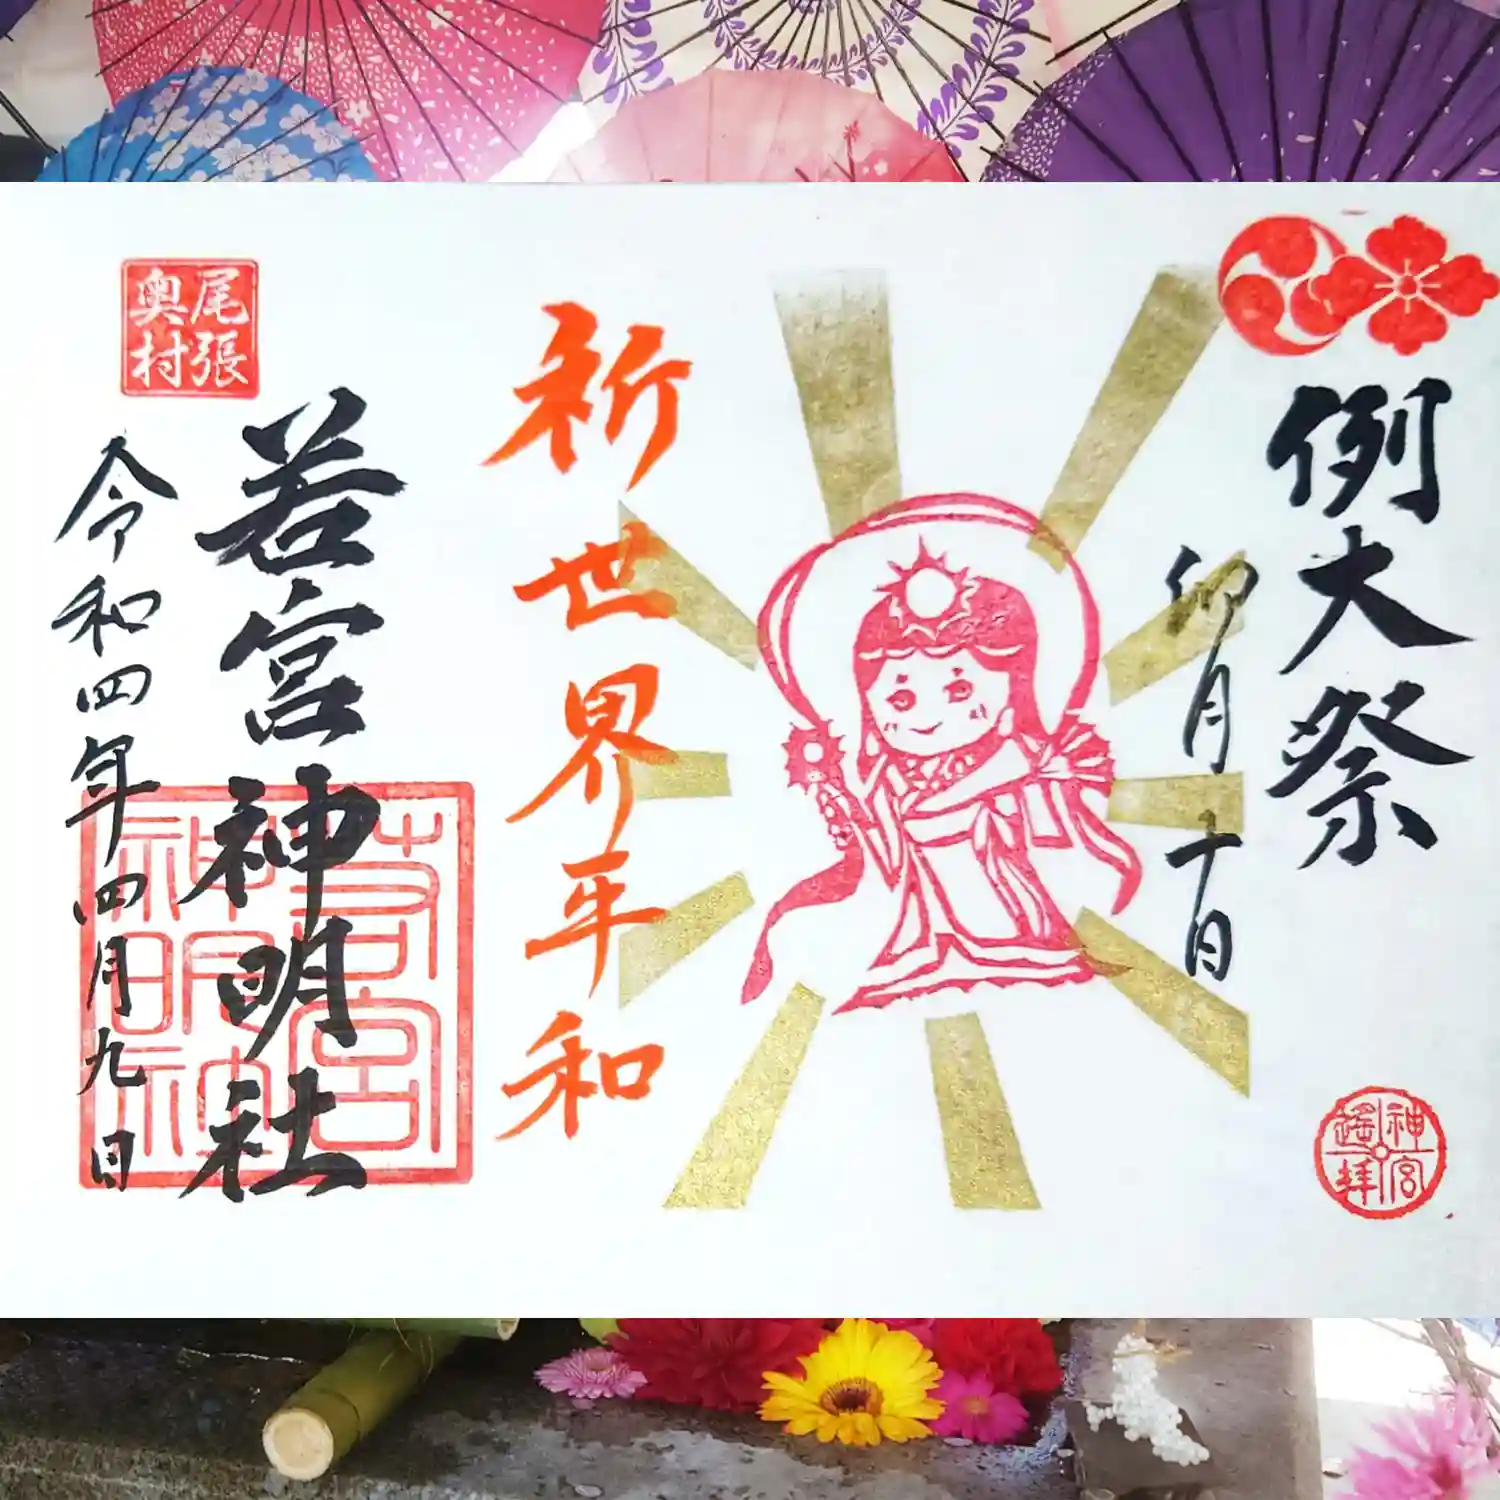 例大祭
卯月十日
神宮
遙拝
祈世界平和
若宮神明社
尾張
奥村
令和四年四月九日
若宮
神明社